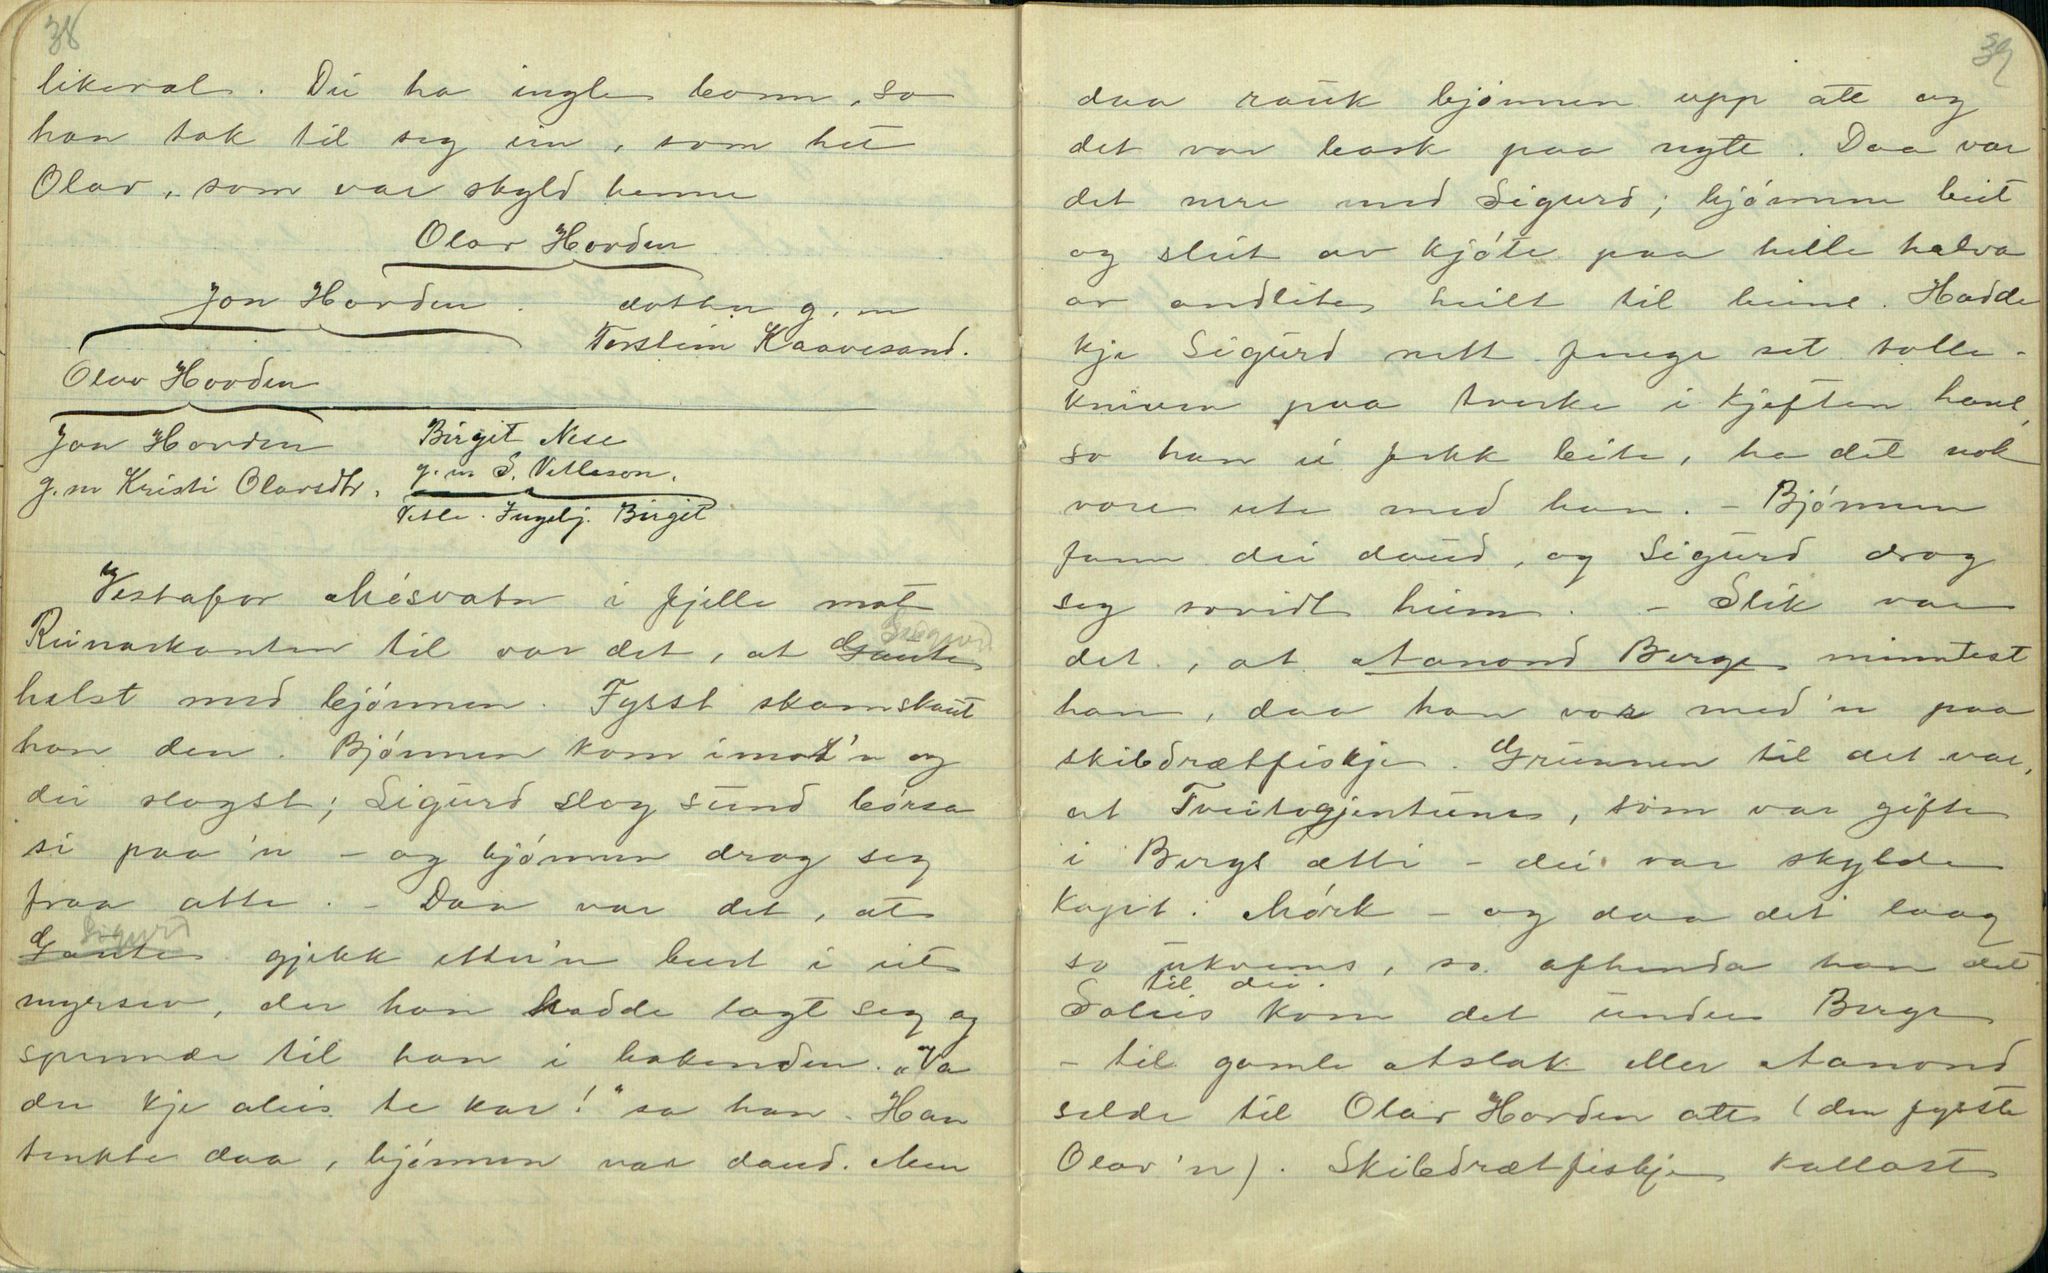 38
likeval. Dei ha ingle bonn, so
han tok til seg ein, som heit
Olav, som var skyld henne
Olav Hovden
Jon Hovden. dotter g. m
Torstein Kaavesand.
Olav Hovden
Jon Hovden Birgit Nese
g. m Kristi Olavsdtr. g. m S. Vetleson.
Vetle. Ingebj. Birgit
Vestafor Mésvatn i fjelle mot
Reinarkanten til var det, at Gaute Sigurd
helst med bjónnen. Fysst skamskaut
han den. Bjónnen kom imot'n og
dei slogst; Sigurd slog sund børsa
si paa'n - og bjónnen drog seg
fraa atte. - Daa var det, at
Sigurd
Gaute gjekk etter'n burt i eit
myrsev, der han hadde lagt seg og
spende til han i bakenden. "Va
du kje aleis te kar!" sa han. Han
tenkte daa, bjónnen var daud. Men
39
daa rauk bjónnen upp att og
det var bask paa nyte. Daa var
det nere med Sigurd; bjónnen beit
og sleit av kjóte paa heile halva
av andlite heilt til beine. Hadde
kje Sigurd nett fenge set tolle-
kniven paa tverke i kjeften hans,
so han ei fekk bite, ha det nok
vore ute med han. - Bjónnen
fann dei daud, og Sigurd drog
seg sovidt heim. - Slik var
det, at Aanond Berge minntest
han, daa han var med'n paa
skibdrætfiskje. Grunnen til det var,
at Tveitogjentune, som var gifte
i Bergs ætti - dei var skylde
Kapt. Mórk - og daa det laag
so ukvems, so afhenda han det
til dei.
Soleis kom det under Berge
- til gamle Atslak eller Aanond
selde til Olav Hovden atte (den fysste
Olav'n). Skibdrætfiskje kallast